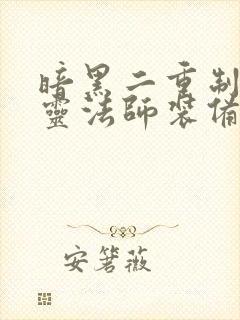 暗黑二重制
靈法師裝備
安箐薇